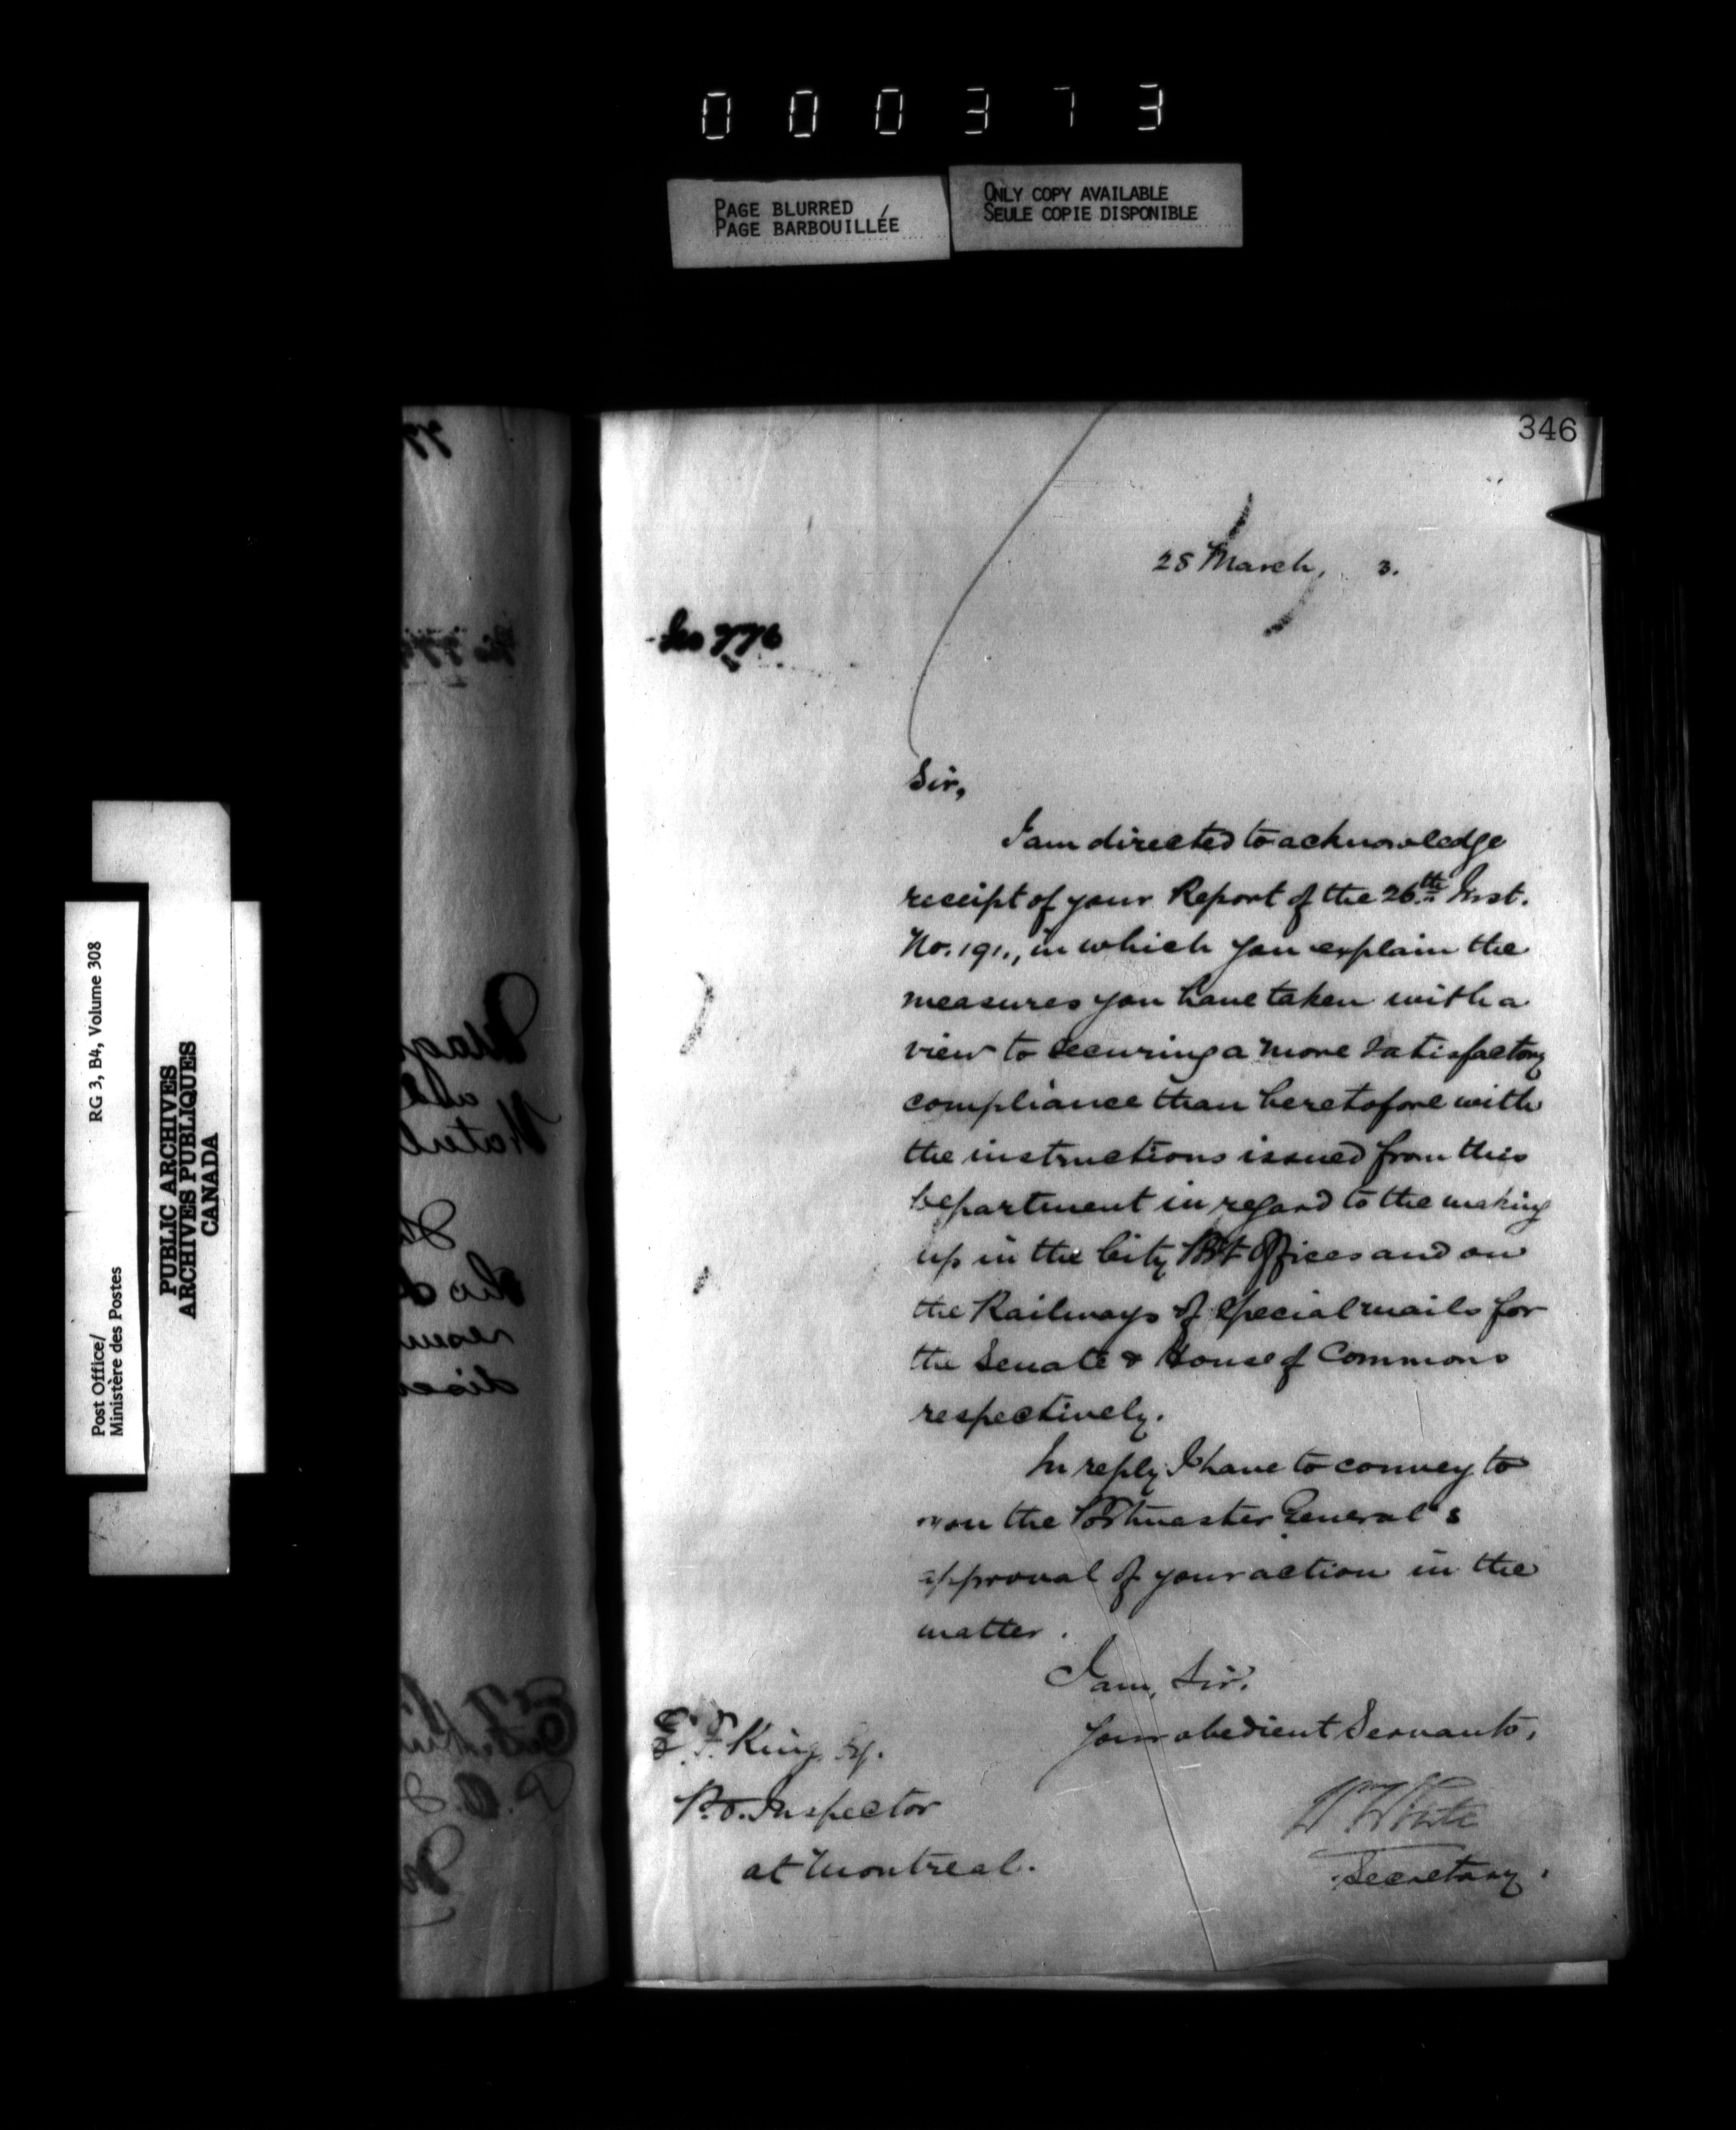 000373
PAGE BLURRED
PAGE BARBOUILLÉE
ONLY COPY AVAILABLE
SEULE COPIE DISPONIBLE
RG 3, B4, Volume 308
Post Office/
Ministère des Postes
PUBLIC ARCHIVES
ARCHIVES PUBLIQUES
CANADA
346
28 March, 3.
No 776
Sir,
I am directed to acknowledge
receipt of your Report of the 26th Inst.
No. 191., in which you explain the
measures you have taken with a
view to securing a more satisfactory
compliance than heretofore with
the instructions issued from this
Department in regard to the making
up in the City Post Offices and on
the Railways of special mails for
the Senate & House of Commons
respectively.
In reply I have to convey to
you the Postmaster General's
approval of your action in the
matter.
I am, Sir.
Your obedient Servant,
E. F. King, Esq.
P.O. Inspector
at Montreal.
W White
Secretary.